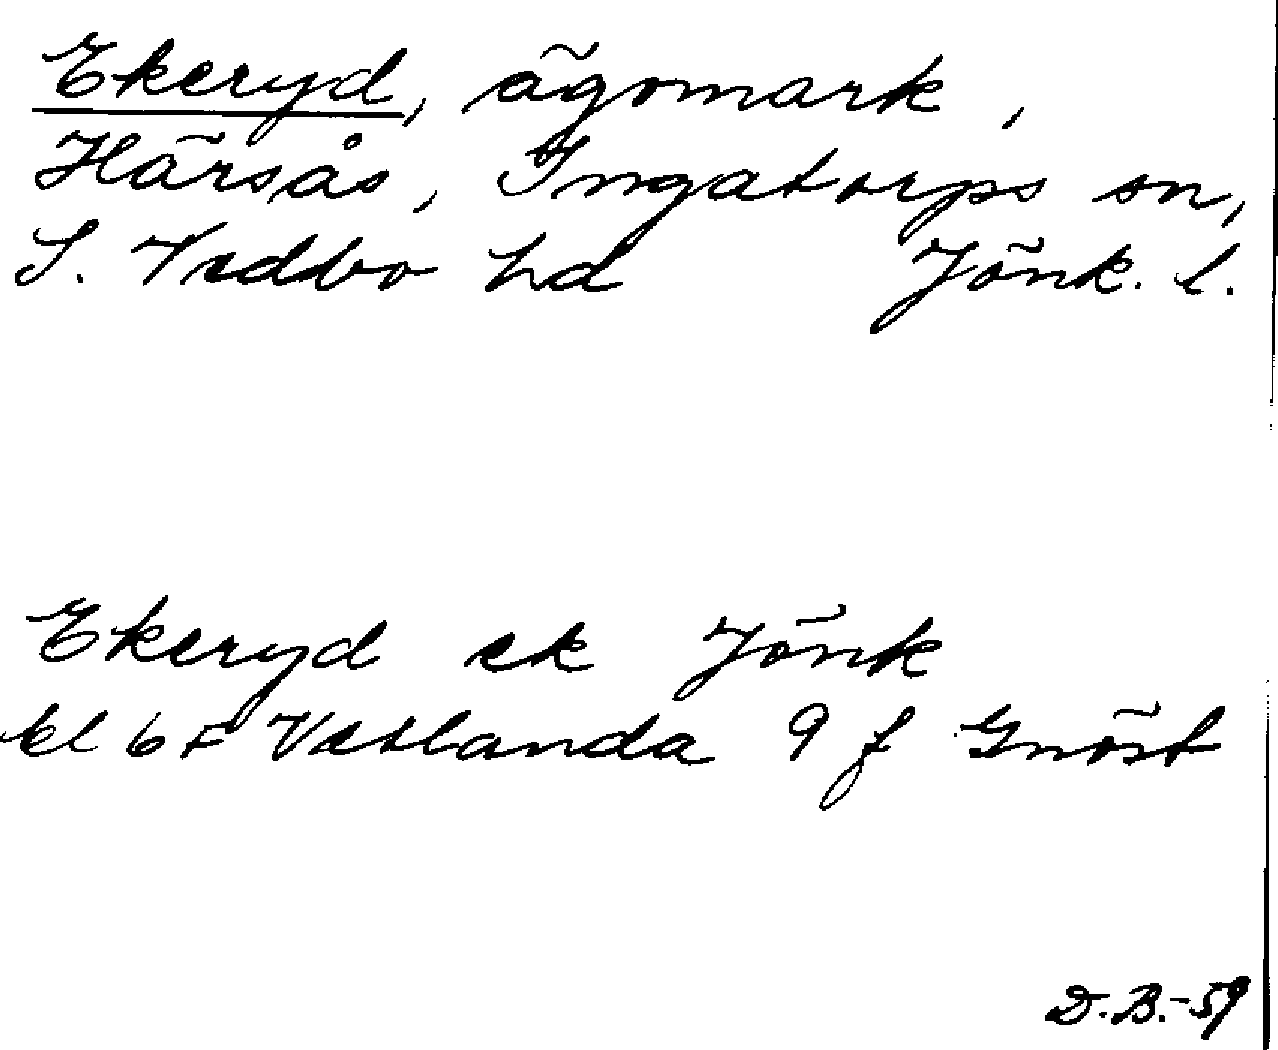 Ekeryd, ägomark,
Härsås, Ingatorps sn,
S. Vedbo hd Jönk. l.
Ekeryd ek Jönk
bl 6 F Vetlanda 9 f Gnöst
D.B.-59